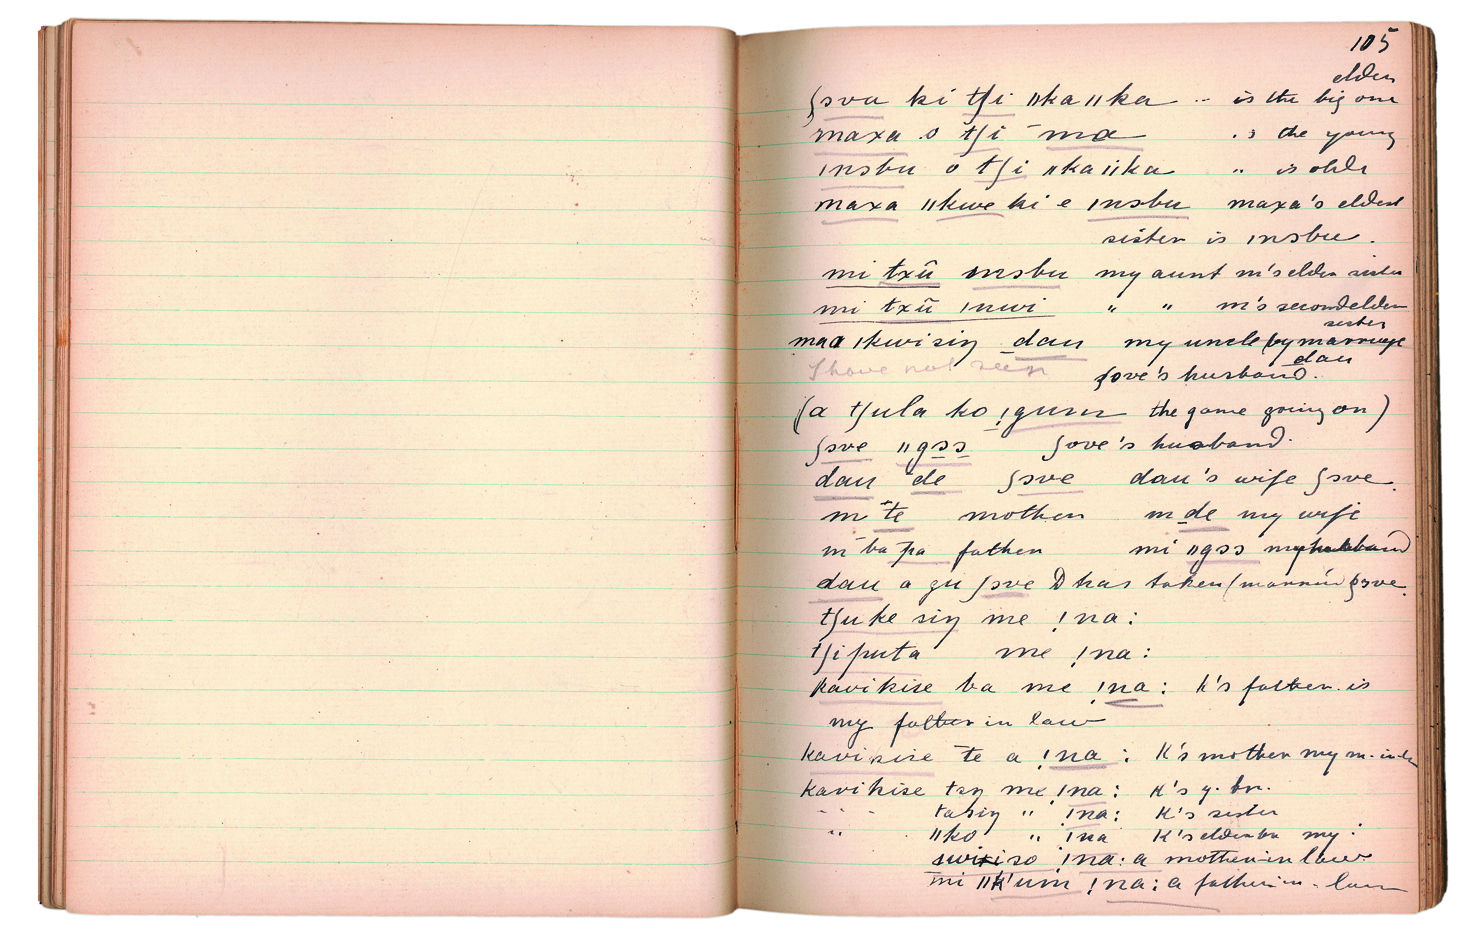 105
elder
ʃɔva ki tʃi ǁkaǁka .. is the big one
maxa o tʃi ma " is the young
ǀnsbu o tʃi ǁkaǁka " is older
maxa ǁkwe ki e ǀnsbu maxa's eldest
sister is ǀnsbu.
mi txū ǀnsbu my aunt m's elder sister
mi txū ǀnwi " " m's second elder
sister
maa ǀkwisiŋ dau my uncle (by marriage
dau
I have not seen ʃove's husband.
(a tʃula ko ǃgum the game going on)
ʃɔve ǁgɔɔ ʃove's husband.
dau de ʃɔve dau's wife ʃɔve.
m te mother m de my wife
m ba pa father mi ǁgɔɔ my husband
dau a gu ʃɔve D has taken (married ʃɔve.
tʃuke siŋ me ǃna:
tʃiputa me ǃna:
kavikise ba me ǃna: K's father is
my father in law
kavikise te a ǃna: K's mother my m. in l
kavikise tsŋ me ǃna: K's y. br.
" tasiŋ " ǃna: K's sister
" ǁko " ǃna K's elder br my :
ǃna: a mother in law
mi ǁk'um ǃna: a father in - law